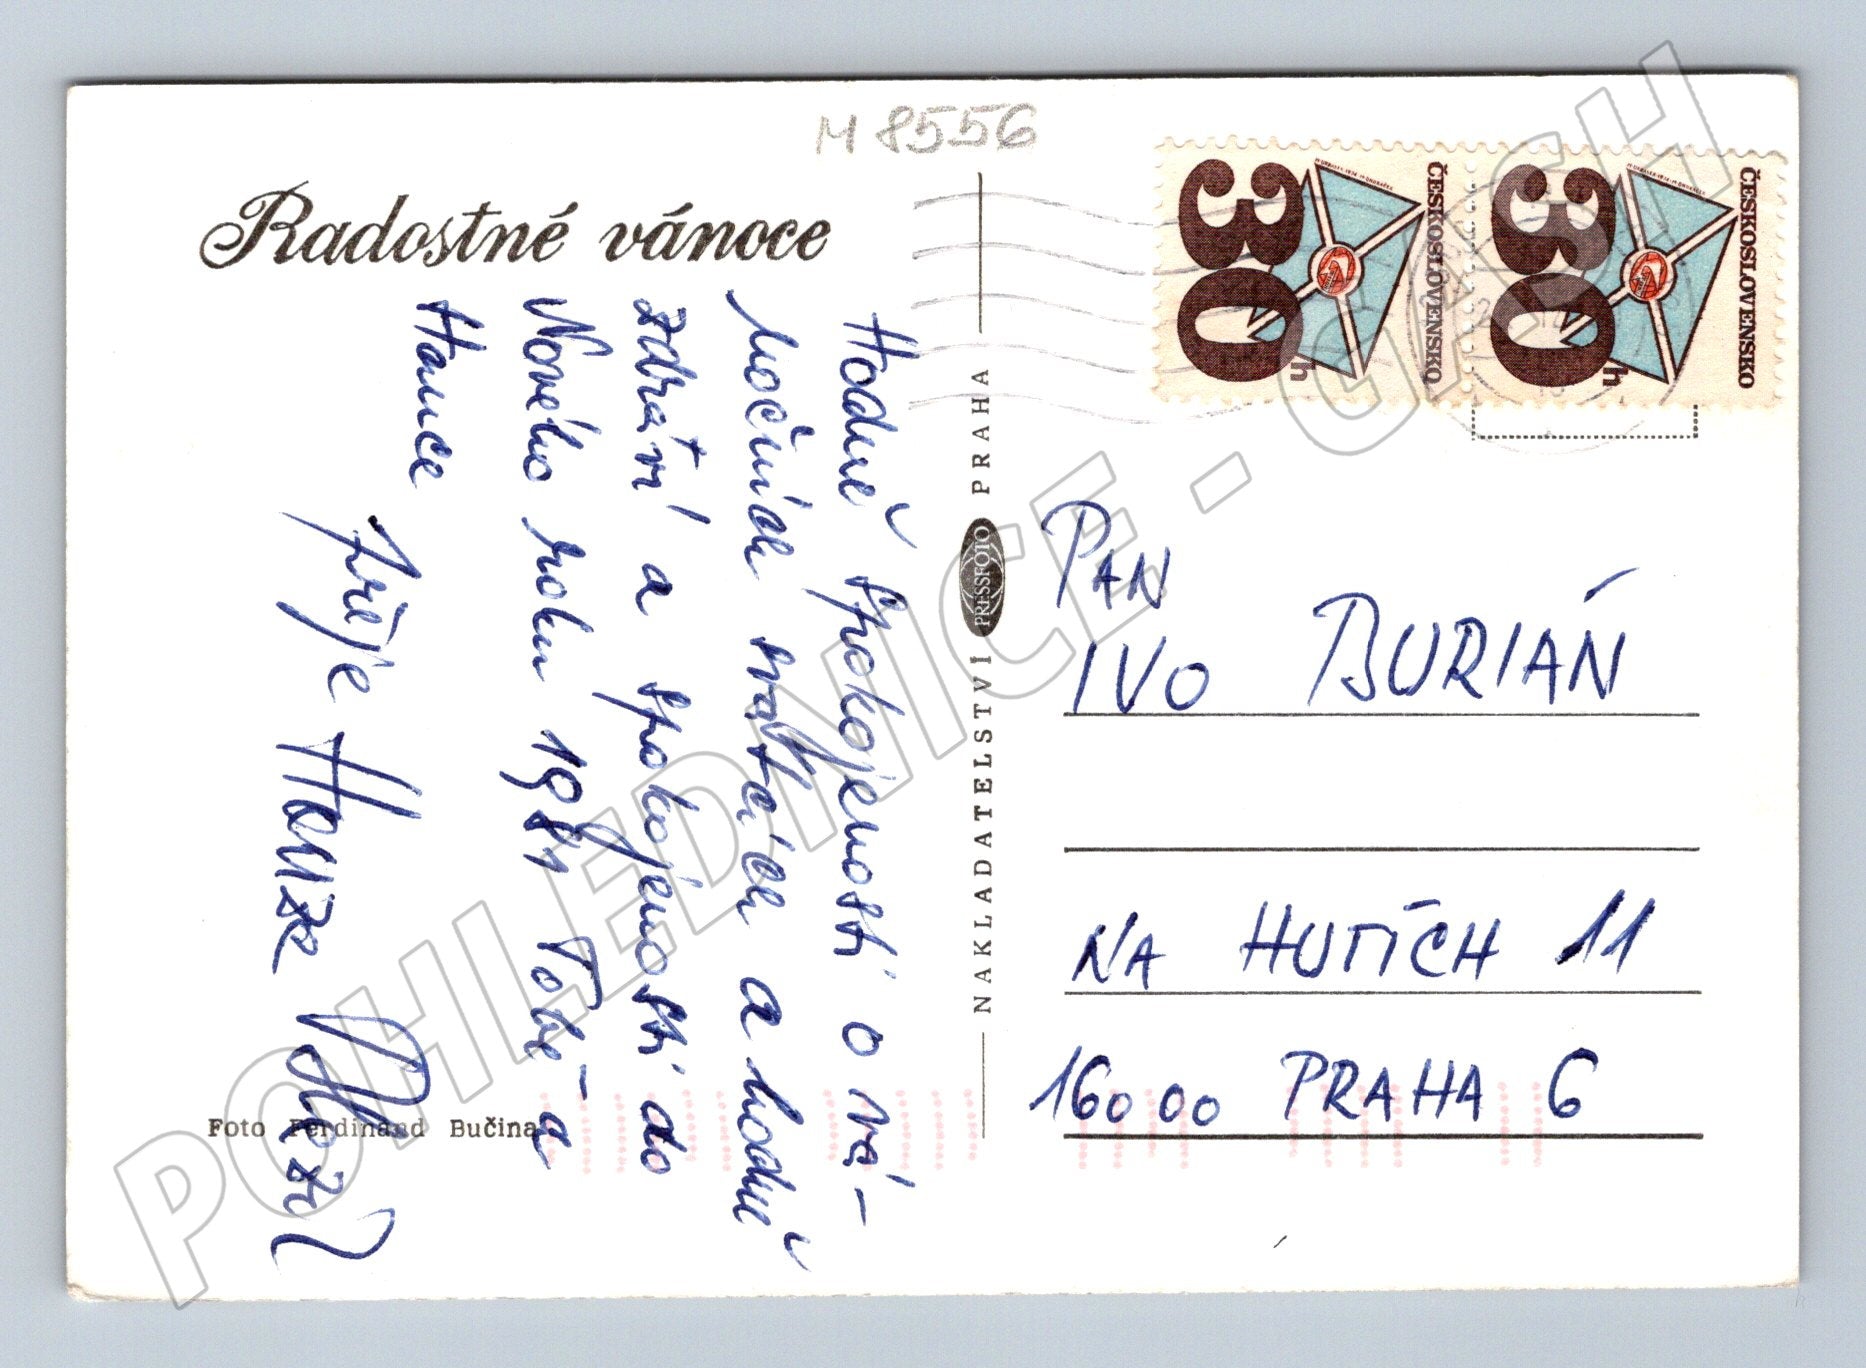 M 8556
Radostné vánoce
Hodně spokojenosti o vá-
nočních svátcích a hodně
zdraví a spokojenosti do
Nového roku 1981 Tobě a
Hance
přeje Honza
Foto Ferdinand Bučina
NAKLADATELSTVÍ PRESSFOTO PRAHA
ČESKOSLOVENSKO
30h
ČESKOSLOVENSKO
30h
PAN
IVO BURIÁN
NA HUTÍCH 11
160 00 PRAHA 6
POHLEDNICE - GASH